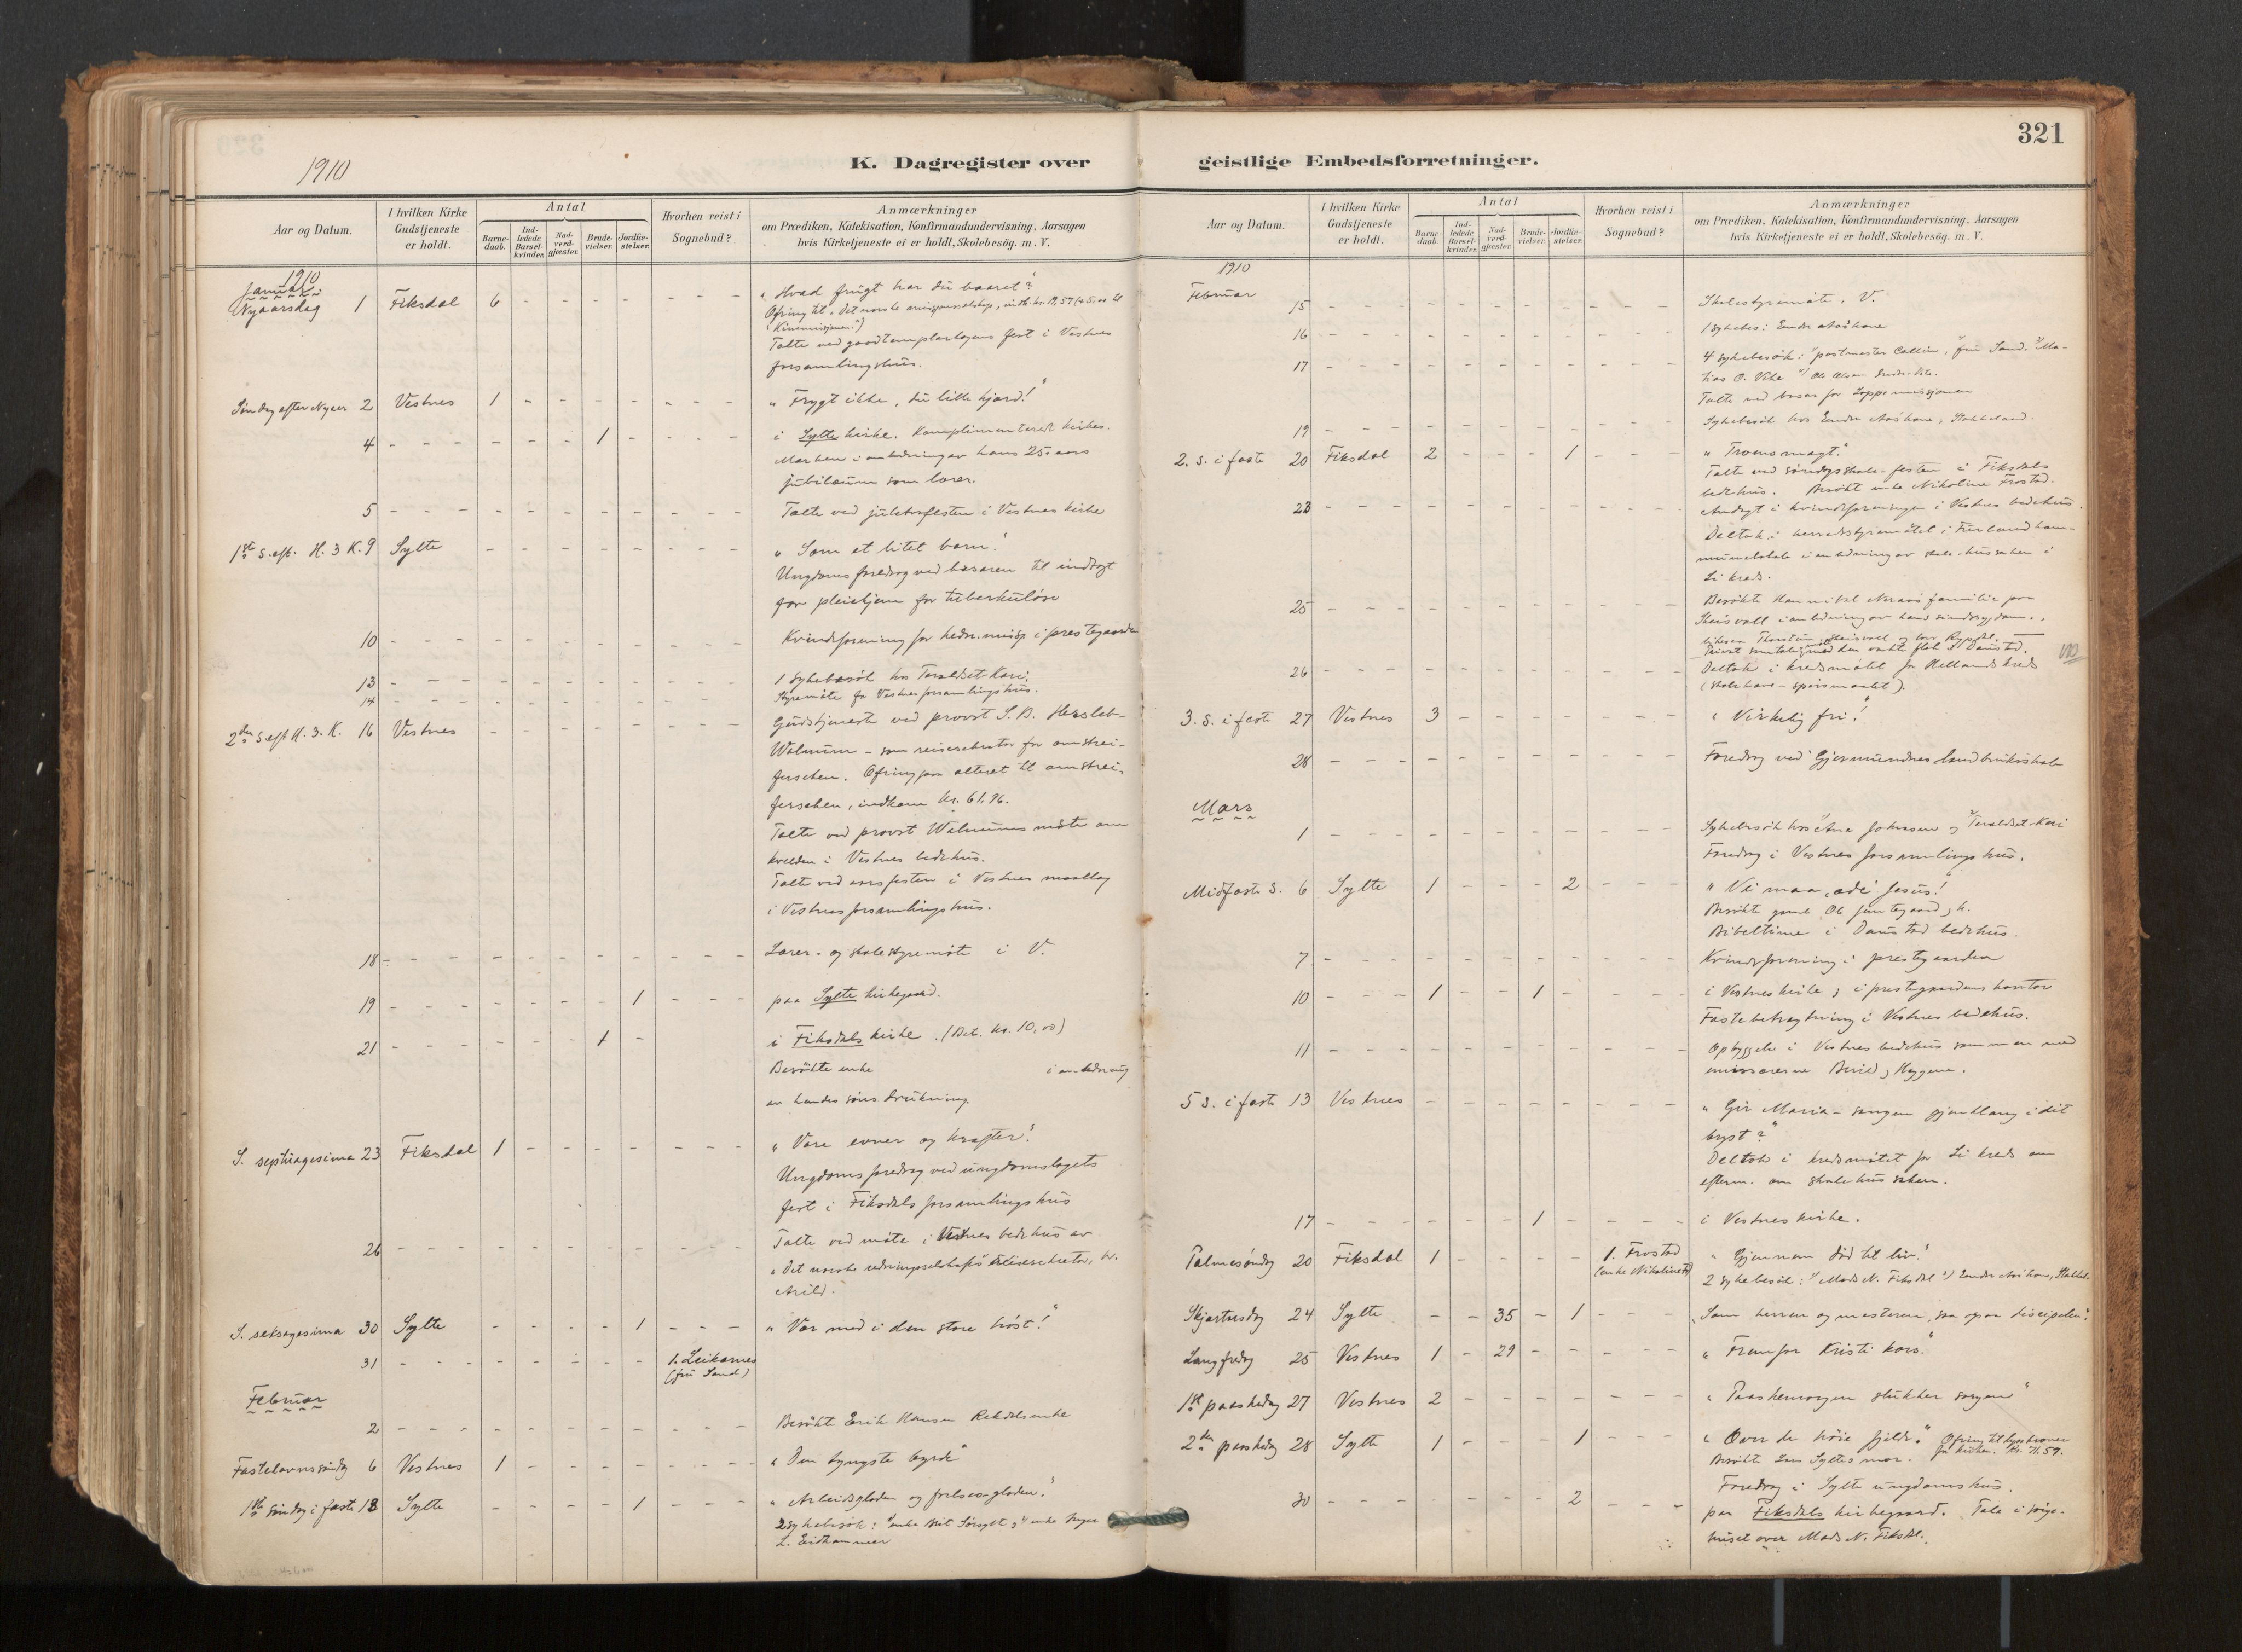 321
1910
K. Dagregister over
geistlige Embedsforretninger.
Aar og Datum.
I hvilken Kirke Gudstjeneste er holdt.
Antal
Barne-daab.
Ind-ledede Barsel-kvinder.
Nad-verd-gjæster.
Brude-vielser.
Jordfæ-stelser.
Hvorhen reist i Sognebud?
Anmærkninger
om Prædiken, Katekisation, Konfirmandundervisning, Aarsagen
hvis Kirketjeneste ei er holdt, Skolebesøg. m. V.
1910
Januar
Nyaarsdag 1 Fiksdal 6 - - - - - - - "Hvad frugt har du baaret?"
Ofring til "Det norske misjonsselskap",
Talte ved goodtemplarlogens fest i Vestnes
forsamlingshus.
Søndag efter Nyaar 2 Vestnes 1 - - - - - - - "Frygt ikke, du lille hjord!"
4 - - - - - - 1 - - - - i Sylte kirke. Komplimenterede kirkes.
i anledning av hans 25-aars
jubilæum som lærer.
5 - - - - - - - - - - - Talte ved juletræfesten i Vestnes kirke
1ste S. eft. H. 3 K. 9 Sylte - - - - - - - - "Som et litet barn."
Ungdomsforedrag ved basaren til indtægt
for pleiehjem for tuberkuløse
10 - - - - - - - - - - - Kvindeforening for hedn. misj. i prestegaarden
13 - - - - - - - - - - - 1 sykebesøk hos Teraldset-Kari.
14 - - - - - - - - - - - Styremøte for Vestnes forsamlingshus.
2den S. eft. H. 3. K. 16 Vestnes - - - - - - - - Gudstjeneste ved provst I. B. Hersleb-
Walnum - som reisesekretær for omstrei-
fersaken. Ofring paa alteret til omstrei-
fersaken, indkom kr. 61,96.
Talte ved provst Walnums møte om
kvelden i Vestnes bedehus.
Talte ved aarsfesten i Vestnes maallag
i Vestnes forsamlingshus.
18 - - - - - - - - - - - Lærer- og skolestyremøte i V.
19 - - - - - - - 1 - - - paa Sylte kirkegaard.
21 - - - - - - 1 - i Fiksdals kirke. (Bet. kr. 10,00)
Besøkte enke i anledning
av hendes søns drukning.
S. septuagesima 23 Fiksdal 1 - - - - - - - "Vore evner og kræfter."
Ungdomsforedrag ved ungdomslagets
fest i Fiksdals forsamlingshus
26 - - - - - - - - - - - Talte ved møte i Vestnes bedehus av
"Det norske redningsselskaps" reisesekretær, hr.
Arild.
S. seksagesima 30 Sylte - - - - 1 - - - "Vær med i den store høst!"
31 - - - - - - - - 1. Leikarnes
(fru Sand)
Februar
2 - - - - - - - - - - - Besøkte Erik Hansen Rekdals enke
Fastelavnssøndag 6 Vestnes 1 - - - - - - - "Den tyngste byrde"
1ste søndag i faste 13 Sylte - - - - 1 - - - "Arbeidsglæden og frelses-glæden."
2 sykebesøk: enke Brit Sørsylt, enke Inger
L. Eidhammer
1910
Februar
15 - - - - - - - - - - - Skolestyremøte. V.
16 - - - - - - - - - - - 1 sykebes.: Endre Aashave
17 - - - - - - - - - - - 4 sykebesøk: postmester Collin, fru Sand, Ma-
tias O. Vike
Talte ved basar for Lappemissjonen
19 - - - - - - - - - - - Sykebesøk hos Endre Aashave, Stokkeland.
2. S. i faste 20 Fiksdal 2 - - - 1 - - - "Troens magt."
Talte ved søndagsskole-festen i Fiksdals
bedehus. Besøkt enke Nikoline Frostad.
23 - - - - - - - - - - - Andagt i kvindeforeningen i Vestnes bedehus.
Deltok i herredsstyremøtet i
munelokale i anledning av skole-hussaken i
Li kreds.
25 - - - - - - - - - - - Besøkte familie paa
Skeisvoll i anledning av hans sindssygdom.
26 - - - - - - - - - - - Deltok i kredsmøtet for Hellands kreds
(skolehave-spørsmaalet).
3. S. i faste 27 Vestnes 3 - - - - - - - "Virkelig fri!"
28 - - - - - - - - - - - Foredrag ved Gjermundnes landbruksskole
Mars
1 - - - - - - - - - - - Sykebesøk hos Ane Johnsen og Teraldset-Kari
Foredrag i Vestnes forsamlingshus.
Midfaste S. 6 Sylte 1 - - - 2 - - - "Vi maa æde Jesus!"
Bibeltime i Daustad bedehus.
7 - - - - - - - - - - - Kvindeforening i prestegaarden
10 - - - 1 - - 1 - - - - i Vestnes kirke; i prestegaardens kontor
Fastebetragtning i Vestnes bedehus.
11 - - - - - - - - - - - Opbyggelse i Vestnes bedehus sammen med
emissærerne
5 S. i faste 13 Vestnes - - - - - - - - "Gir Maria-sangen gjenklang i dit
bryst?"
Deltok i kredsmøtet for Li kreds om
efterm. om skolehussaken.
17 - - - - - - 1 - - - - i Vestnes kirke.
Palmesøndag 20 Fiksdal 1 - - - - 1. Frostad
(enke Nikoline F.) "Gjennem død til liv!"
2 sykebesøk: Mads N. Fiksdal Endre Aashave, Stokkel.
Skjærtorsdag 24 Sylte - - 35 - 1 - - - "Som herren og mesteren, saa ogsaa disciplen."
Langfredag 25 Vestnes 1 - 29 - - - - - "Fremfor Kristi kors."
1ste paaskedag 27 Vestnes 2 - - - - - - - "Paaskemorgen slukker sorgen"
2den paaskedag 28 Sylte 1 - - - 1 - - - "Over de høie fjelde." Ofring til lysekroner
for kirken. Kr. 71.59.
Besøkte Lars Syltes mor.
Foredrag i Sylte ungdomshus.
30 - - - - - - - 2 - - - paa Fiksdals kirkegaard. Tale i sørge-
huset over Mads N. Fiksdal.